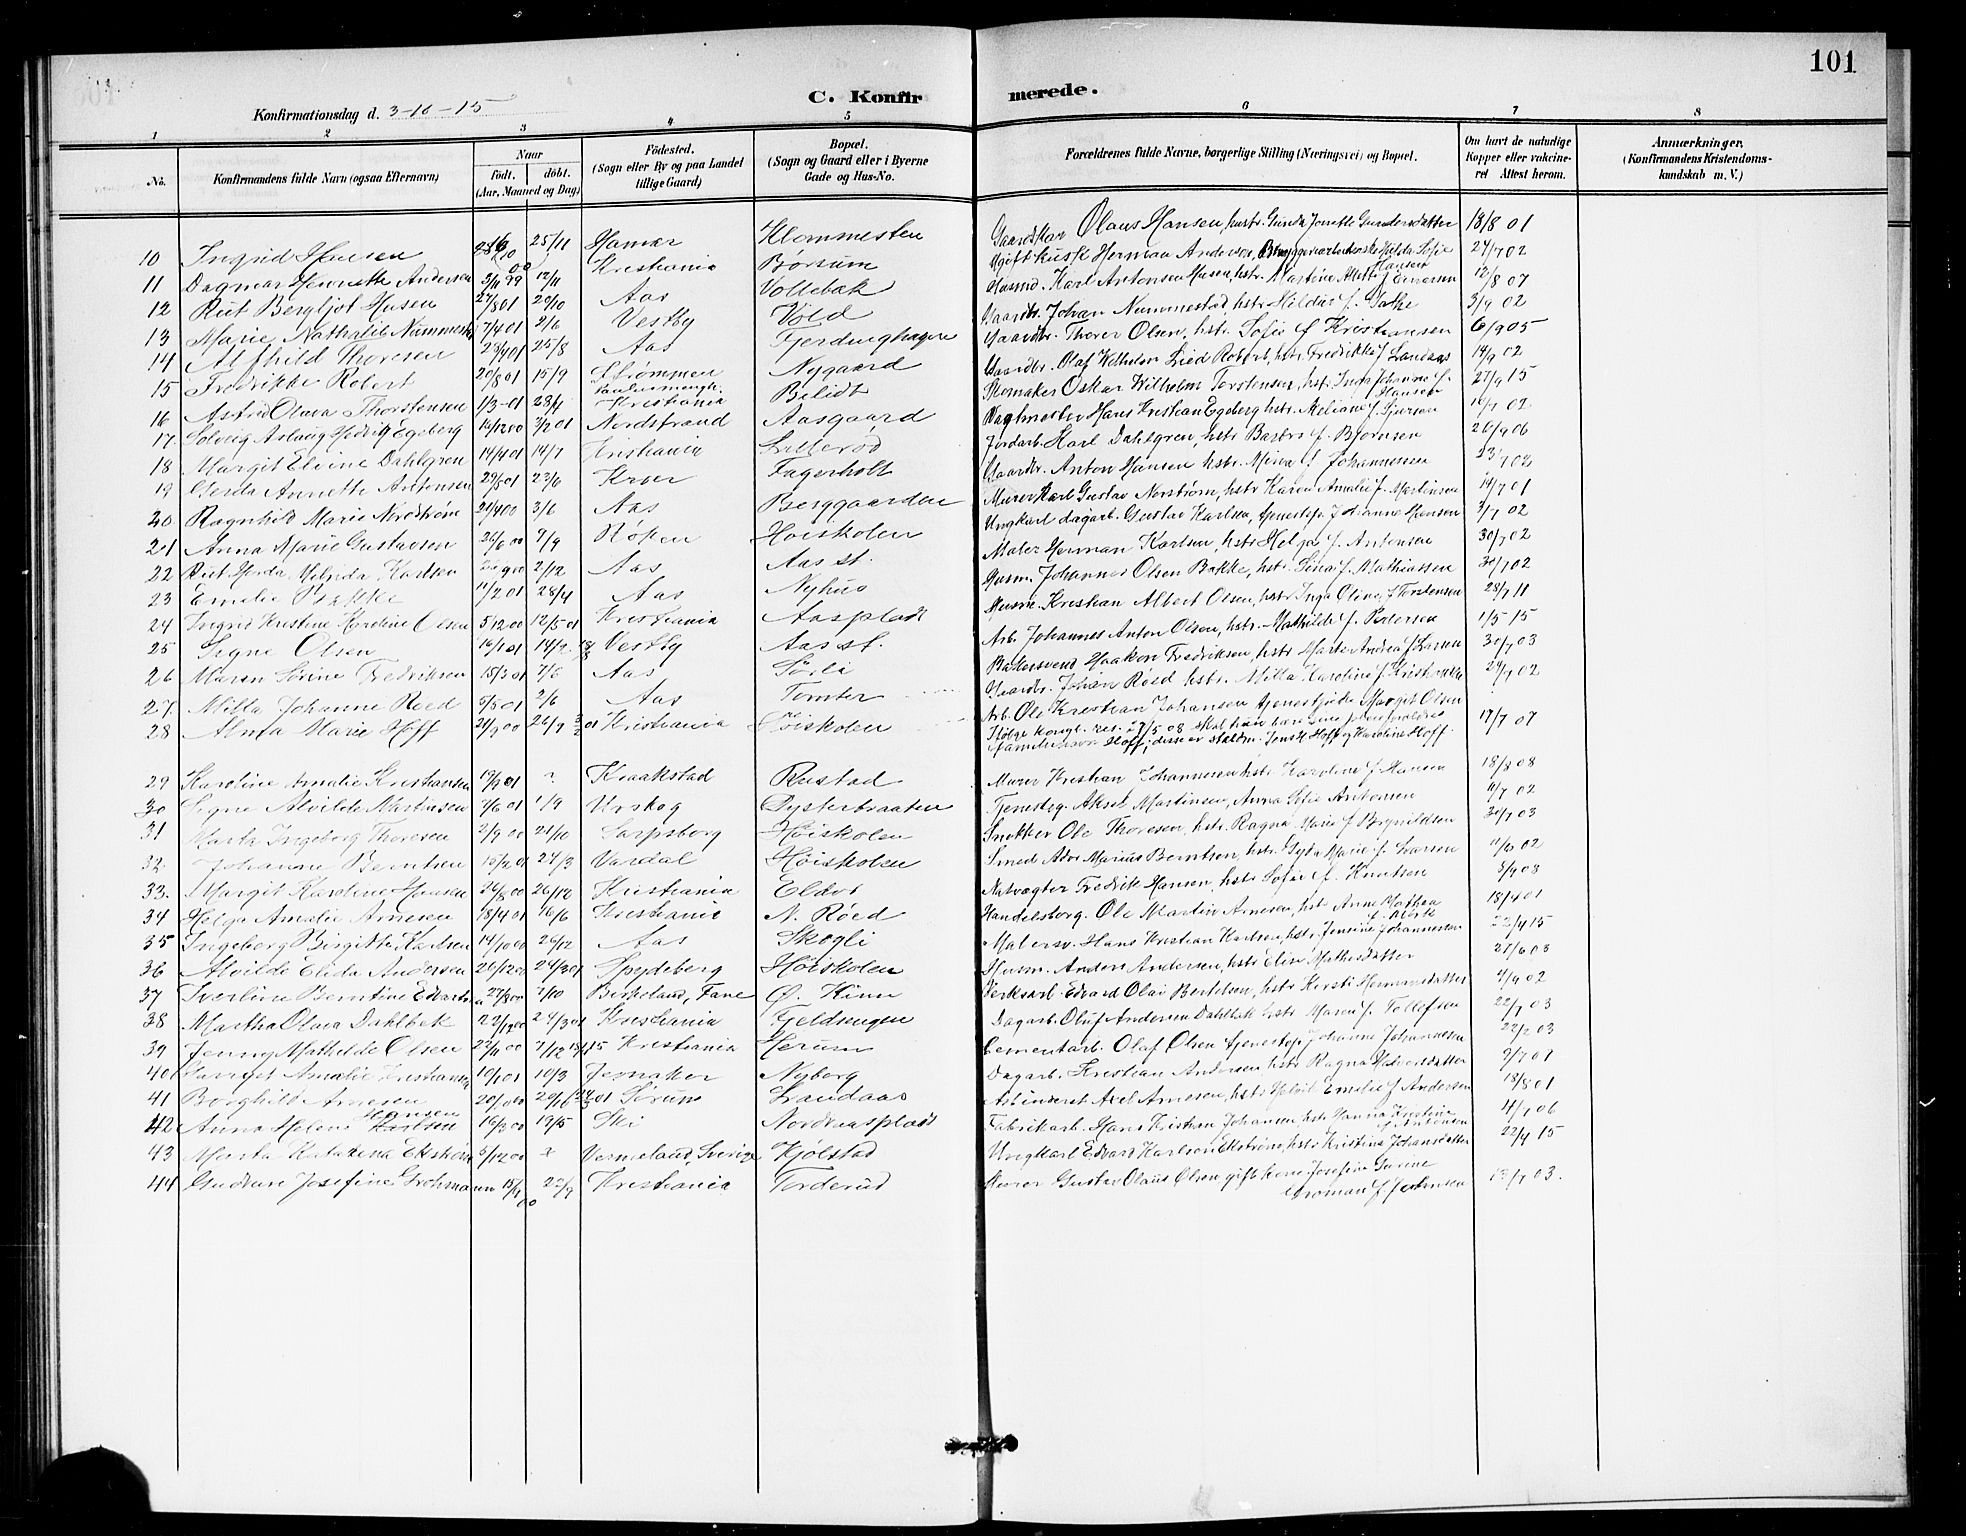 101
C. Konfirmerede.
Konfirmationsdag d. 3-10-15
1 2 3 4 5 6 7 8
No. Konfirmandens fulde Navn (ogsaa Efternavn) Naar født. døbt. (Aar, Maaned og Dag) Fødested. (Sogn eller By og paa Landet tillige Gaard) Bopæl. (Sogn og Gaard eller i Byerne Gade og Hus-No. Forældrenes fulde Navne, borgerlige Stilling (Næringsvei) og Bopæl. Om havt de naturlige Kopper eller vaccineret Attest herom. Anmærkninger, (Konfirmandens Kristendomskundskab m. V.)
10 Ingrid Hansen 25/11 Hamar Klommesten Olaus Hansen, hustr. Gunda Jonette Gundersdatter 18/8 01
11 Dagmar Henriette Andersen 3/11 99 12/11 Kristiania Børsum Herman Andersen, Hilda Sofie Hansen 27/7 02
12 Rut Bergljot Husen 27/8 01 20/10 Aas Vollebæk Husmd. Karl Antonsen Husen, hstr. Martine Alette f. Einersen 12/8 07
13 Marie Nathalie Nummestad 7/4 01 2/6 Vestby Vold Gaardbr. Johan Nummestad, hstr. Hilda f. Bakke 3/9 02
14 Alfhild Thoresen 28/4 01 25/8 Aas Fjerdinghagen Gaardbr. Thorer Olsen, hstr. Sofie f. Kristiansen 6/9 05
15 Fredrikke Robert 20/8 01 15/9 Strømmen Nygaard Gaardbr. Olaf Robert, hstr. Fredrikke f. Landaas 14/9 02
16 Astrid Olava Thorstensen 1/3-01 28/4 Kristiania Bilidt Skomaker Oskar Wilhelm Torstensen, hstr. Inga Johanne f. Hansen 27/9 15
17 Solveig Aslaug Hedvig Egeberg 14/12 00 3/2 01 Nordstrand Aasgaard Vagtmester Hans Kristian Egeberg hstr. Meliane f. Sjursen 16/7 02
18 Margit Elvine Dahlgren 14/4 01 14/7 Kristiania Sallerød Jordarb. Karl Dahlgren, hstr. Barbro f. Bjørnsen 26/9 06
19 Gerda Annette Antonsen 29/5 01 23/6 Kroer Fagerholt Gaardbr. Anton Hansen hstr. Mina f. Johannessen 23/7 02
20 Ragnhild Marie Nordstrøm 21/4 00 3/6 Aas Berggaarden Murer Karl Gustav Norstrøm, hstr. Karen Amalie f. Martinsen 14/7 01
21 Anna Marie Gustavsen 26/6 00 7/9 Røken Høiskolen Ungkarl dagarb. Gustav Karlsen, tjenestep. Johanne Hansen 3/7 02
22 Rut Herda Karlsen 2/12 Aas Aas st. Maler Herman Karlsen, hstr. Helga f. Antonsen 30/7 02
23 Emilie Bakke 11/2 01 28/4 Aas Nyhus Husm. Johannes Olsen Bakke, hstr. Lina f. Mathiassen 30/7 02
24 Ingrid Kristine Karoline Olsen 5/12 00 12/5 01 Kristiania Aasplads Husm. Kristian Albert Olsen, hstr. Inga Oline f. Torstensen 28/7 11
25 Signe Olsen 16/1 01 14/2 Vestby Aas st. Arb. Johannes Anton Olsen, hstr. Mathilde f. Petersen 1/5 15
26 Maren Sørine Fredriksen 15/3 01 7/6 Aas Sørli Bakersvend Haakon Fredriksen, hstr. Marte Andrea f. Larsen 30/7 03
27 Milla Johanne Røed 5/5 01 2/6 Aas Tomter Gaardbr. Johan Røed hstr. Milla Karoline f. 24/7 02
28 Alma Marie Hoff 21/9 00 26/9 Kristiania Høiskolen Arb. Ole Kristian Johansen, tjenestepike Margit Olsen
Ifølge kongl. res. 27/5 08 skal hun bære sine familienavn Hoff; disse er staldm. Jens H. Hoff og Karoline Hoff. 17/7 07
29 Karoline Amalie Kristiansen 19/9 01 ? Kraakstad Rustad Murer Kristian Johannesen hstr. Karoline f. Hansen 18/8 08
30 Signe Alvilde Martinsen 7/6 01 1/9 Urskog Dysterbraaten Tjenestg. Aksel Martinsen, Anna Sofie Antonsen 11/7 02
31 Marta Ingeborg Thoresen 2/9 00 21/10 Sarpsborg Høiskolen Snekker Ole Thoresen, hstr. Ragna Marie f. Brynildsen 30/7 03
32. Johanne Berntsen 15/2 01 24/3 Vardal Høiskolen Smed Marius Berntsen, hstr. Gyda Marie f. Larsen 11/6 02
33. Margit Karoline Hansen 24/8 00 26/12 Kristiania Eldor Natvægter Fredrik Hansen, hstr. Sofie f. Knutsen 5/9 08
34 Helga Amalie Arnesen 18/4 01 16/6 Kristiania N. Røed Handelsborg. Ole Martin Arnesen, hst. Anne Mathea 18/4 01
35 Ingeborg Birgitte Karlsen 14/10 00 26/12 Aas Skogli Malersv. Hans Kristian Karlsen, hstr. Jensine Johannessen 22/4 15
36 Alvilde Elida Andersen 26/12 00 24/3 01 Spydeberg Høiskolen Husm. Anders Andersen, hstr. Elise Mathesdatter 21/6 03
37 Sverline Berntine Edvards 27/8 00 7/10 Birkeland, Fane Ø. Kinn Verksarb. Edvard Olai Bertelsen, hstr. Kirsti Hermansdatter 4/9 02
38 Martha Olava Dahlbek 22/12 00 24/3 01 Kristiania Geldsengen Dagarb. Oluf Andersen Dahlbek hstr. Maren f. Tollefsen 22/7 03
39 Jenny Mathilde Olsen 22/11 00 Kristiania Herum Cementarb. Olaf Olsen tjenestep. Johanne Johannesen 22/2 03
40 Amalie Kristiansen 10/1 01 10/3 Jevnaker Nyborg Dagarb. Kristian Andersen, hstr. Ragna Halvorsdatter 2/7 01
41 Borghild Arnesen 20/ 00 29/ 01 Sørum Landaas Axel Arnesen, hstr. Emilie f. Andersen 18/8 01
42 Anna Helene Hansen Karlsen 16/3 00 19/5 Ski Nordraasplads Fabrikarb. Hans Kristian Johansen, hstr. Hanna Kristine f. Antonsen 4/7 06
43 Marta Katarina Ekstrøm 5/12 00 Varmeland, Sverige Kjølstad Ungkarl Edvard Karlson Ekstrøm, hstr. Kristine Johansdatter 22/4 15
44 Gudrun Josefine Grohmann 15/7 00 22/9 Kristiania Torderud Murer Gustav Olaus Olsen gift kone Josefine Gurine Groman f. Jørgensen 13/7 03.